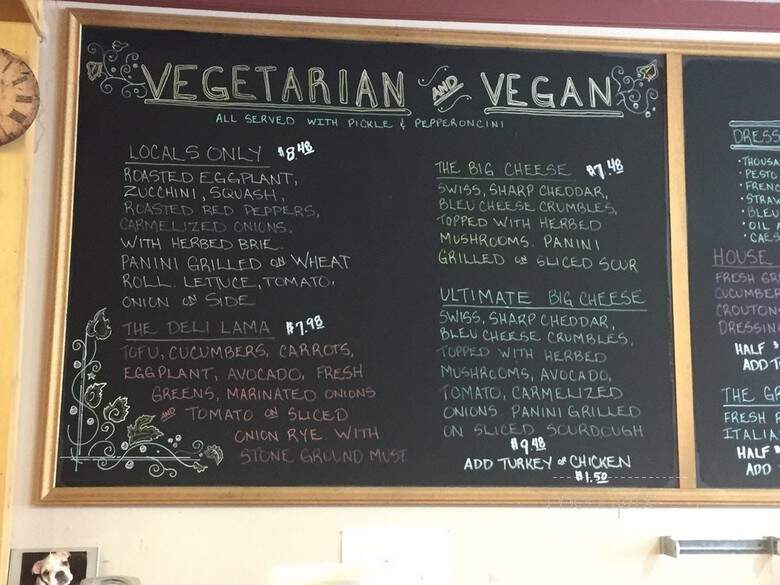 VEGETARIAN AND VEGAN
ALL SERVED WITH PICKLE & PEPPERONCINI
LOCALS ONLY $8.48
ROASTED EGGPLANT,
ZUCCHINI, SQUASH,
ROASTED RED PEPPERS,
CARMELIZED ONIONS.
WITH HERBED BRIE.
PANINI GRILLED ON WHEAT
ROLL. LETTUCE, TOMATO,
ONION ON SIDE
THE DELI LAMA $7.98
TOFU, CUCUMBERS, CARROTS,
EGGPLANT, AVOCADO, FRESH
GREENS, MARINATED ONIONS
AND TOMATO ON SLICED
ONION RYE. WITH
STONE GROUND MUST.
THE BIG CHEESE $7.48
SWISS, SHARP CHEDDAR,
BLEU CHEESE CRUMBLES,
TOPPED WITH HERBED
MUSHROOMS. PANINI
GRILLED ON SLICED SOUR
ULTIMATE BIG CHEESE
SWISS, SHARP CHEDDAR,
BLEU CHEESE CRUMBLES,
TOPPED WITH HERBED
MUSHROOMS, AVOCADO,
TOMATO, CARMELIZED
ONIONS PANINI GRILLED
ON SLICED SOURDOUGH
$9.48
ADD TURKEY OR CHICKEN
$1.50
DRESS
• THOUSA
• PESTO
• FRENC
• STRAW
• BLEU
• OIL A
• CAES
HOUSE
FRESH GR
CUCUMBER
CROUTON
DRESSIN
HALF $
ADD T
THE GR
FRESH
ITALIA
HALF $
ADD